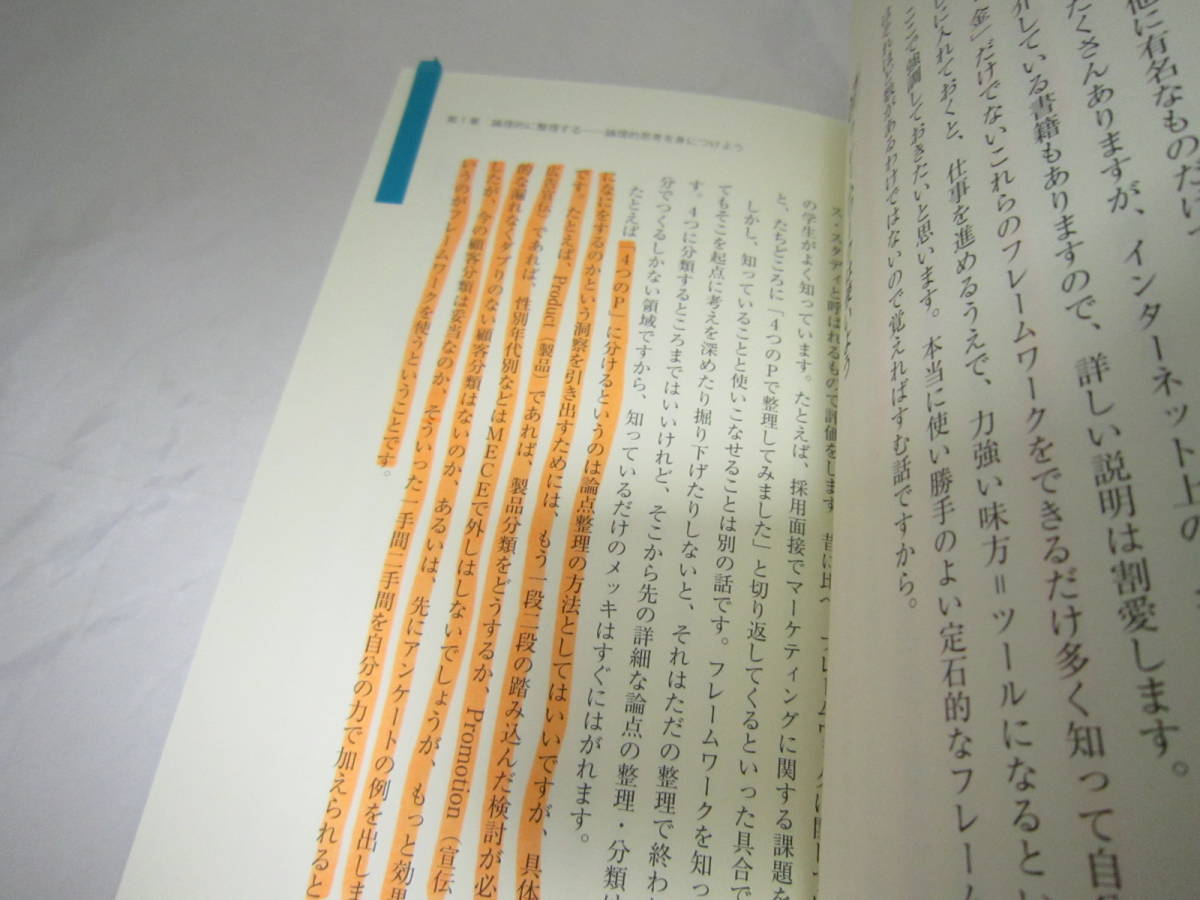 他に有名なものだい
たくさんありますが、インターネット上の
介している書籍もありますので、詳しい説明は割愛します。
金」だけでないこれらのフレームワークをできるだけ多く知って自
しに入れておくと、仕事を進めるうえで、力強い味方＝ツールになると
ここで強調しておきたいと思います。本当に使い勝手のよい定石的なフレーム
があるわけではないので覚えればすむ話ですから。
第1章 論理的に整理する――論理的思考を身につけよう
ス・スタディと呼ばれるもので評価をします
の学生がよく知っています。たとえば、採用面接でマーケティングに関する課題を
と、たちどころに「4つのPで整理してみました」と切り返してくるといった具合で
しかし、知っていることと使いこなせることは別の話です。フレームワークを知っ
てもそこを起点に考えを深めたり掘り下げたりしないと、それはただの整理で終わ
す。4つに分類するところまではいいけれど、そこから先の詳細な論点の整理・分類は
分でつくるしかない領域ですから、知っているだけのメッキはすぐにはがれます。
たとえば「4つのP」に分けるというのは論点整理の方法としてはいいですが、具体
になにをするのかという洞察を引き出すためには、もう一段二段の踏み込んだ検討が必
です。たとえば、Product（製品）であれば、製品分類をどうするか、Promotion（宣伝
広告宣伝）であれば、性別年代別などはMECEで外しはしないでしょうが、もっと効果
的な漏れなくダブりのない顧客分類はないのか、あるいは、先にアンケートの例を出しま
したが、今の顧客分類は妥当なのか、そういった一手間二手間を自分の力で加えられると
いうのがフレームワークを使うということです。